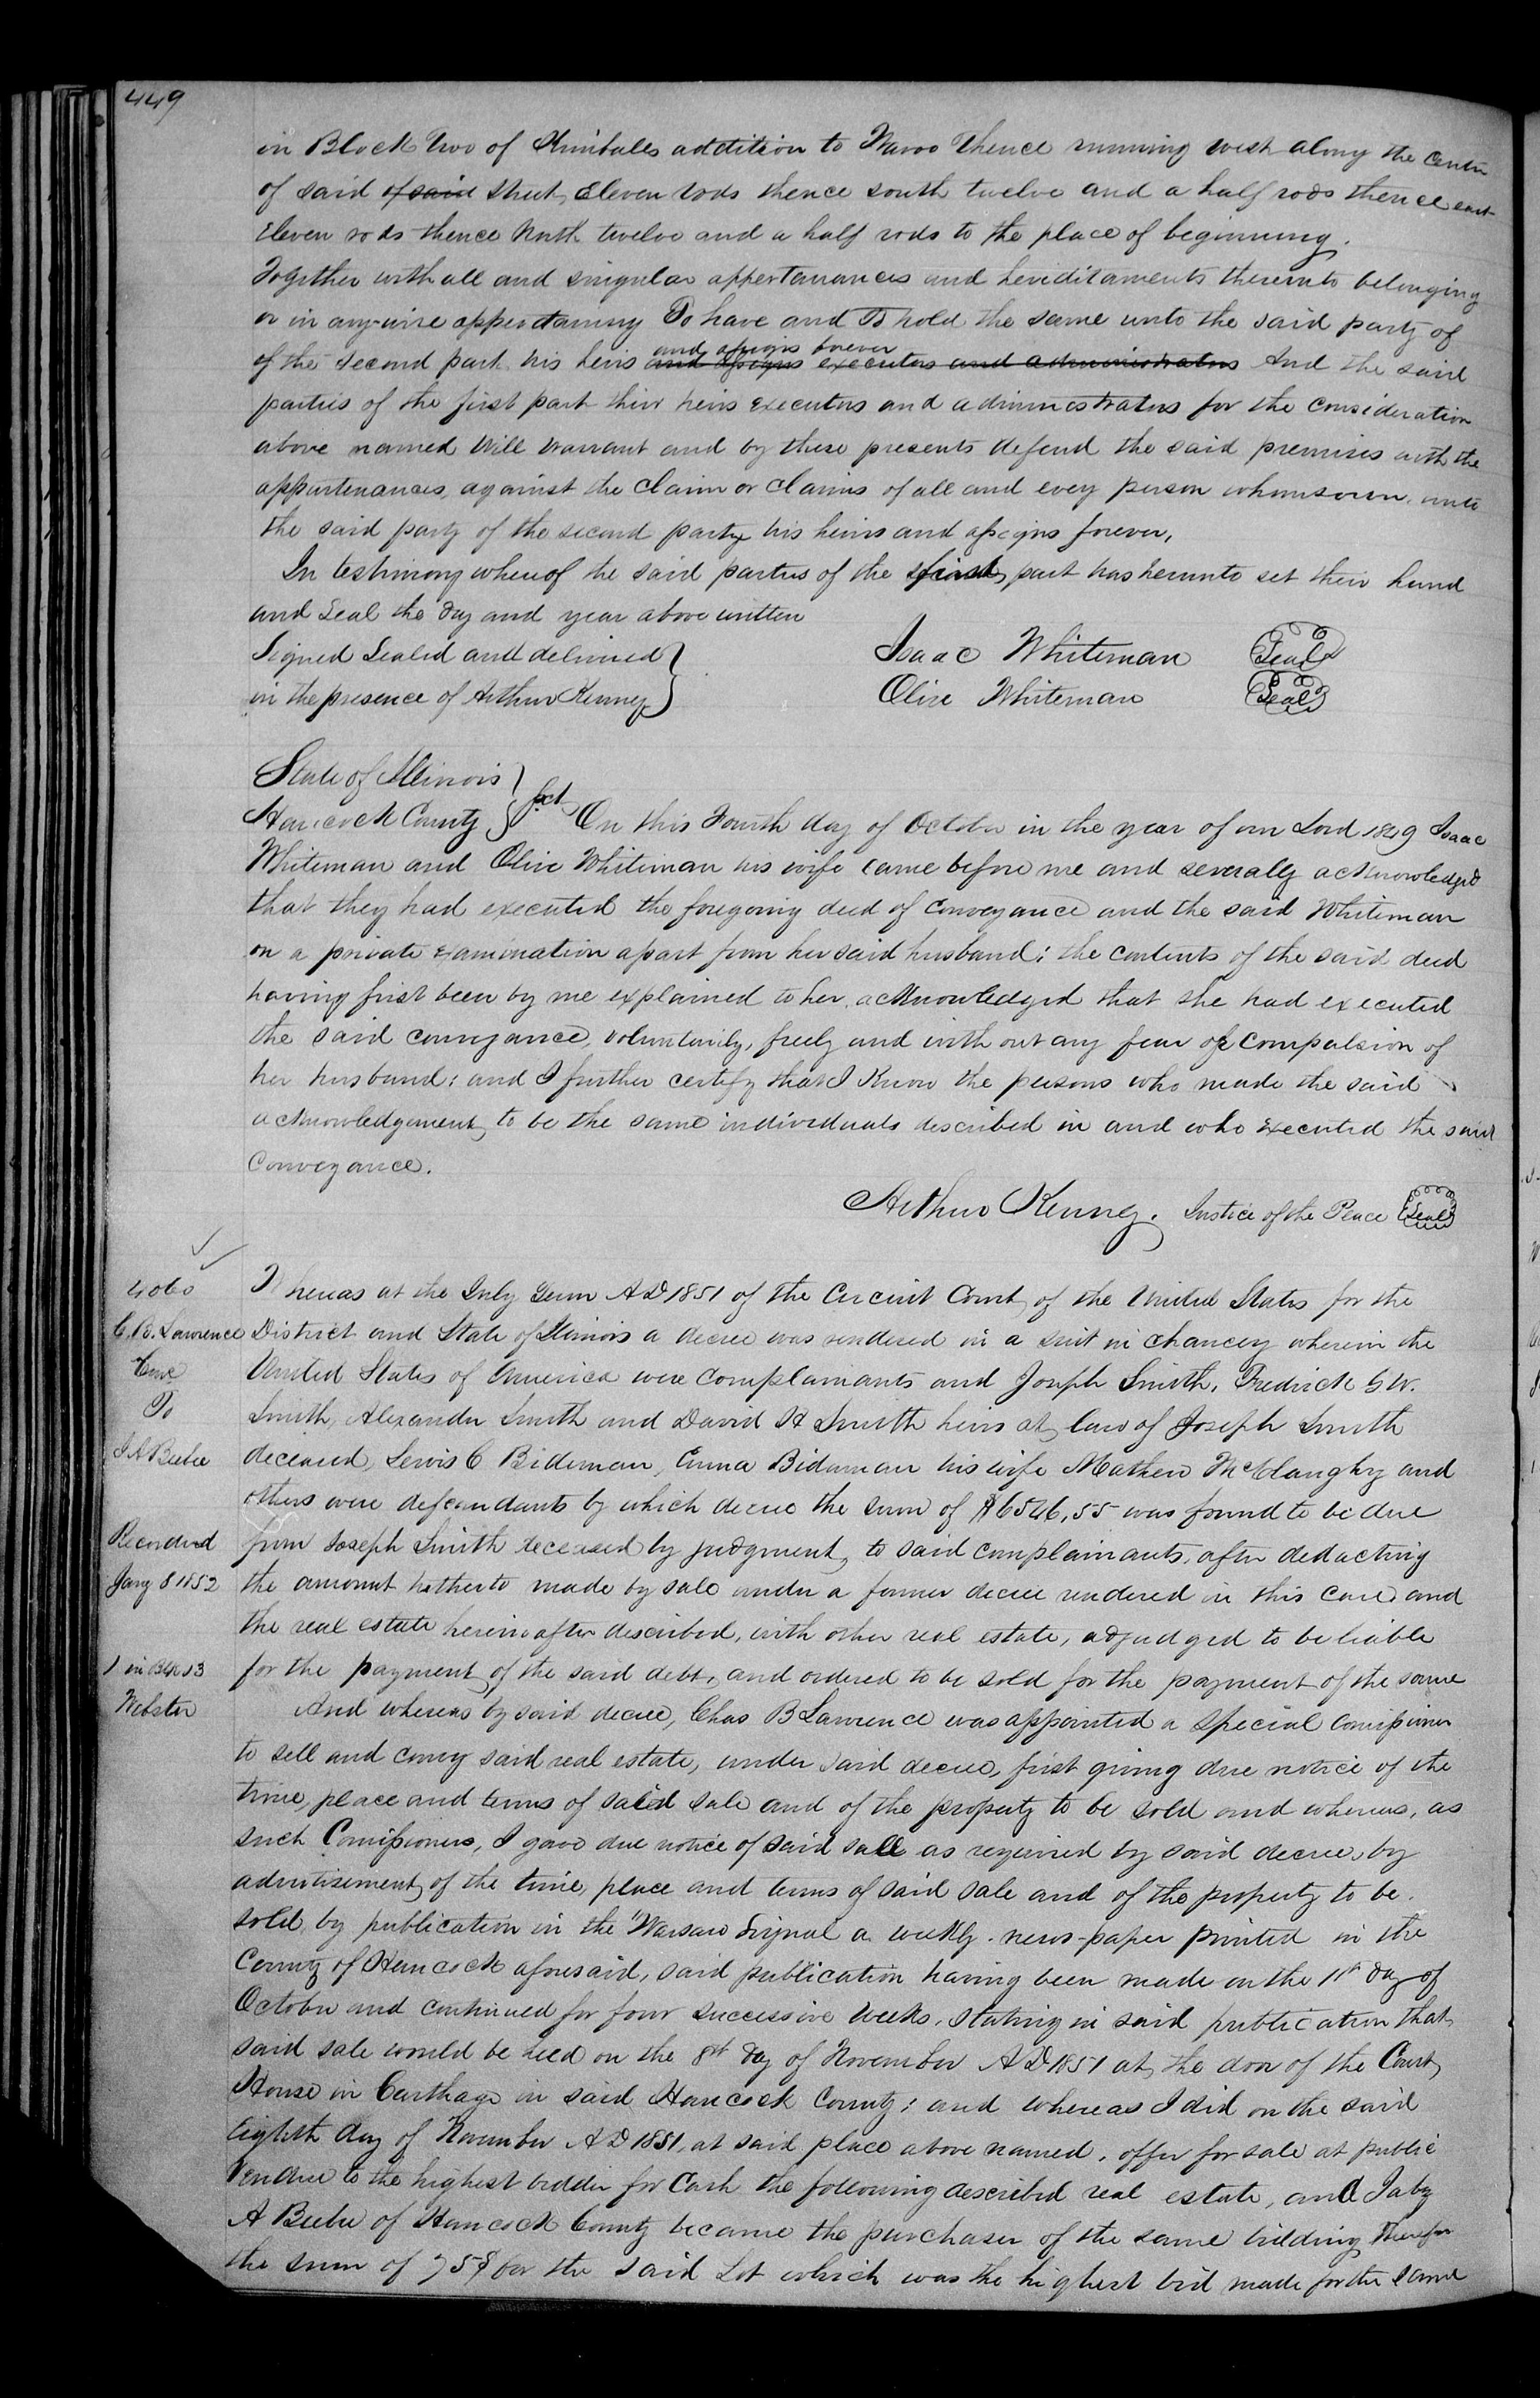 449
in Block Two of Kimballs addition to Nauvoo thence running west along the center
of said of said Street, Eleven rods thence south twelve and a half rods thence east
Eleven rods thence North twelve and a half rods to the place of beginning.
Together with all and singular appertanances and heriditaments thereunto belonging
or in any-wise appertaning To have and To hold the same unto the said party of
and assigns forever
of the second part his heirs and assigns executors and administrators And the said
parties of the first part their heirs executors and administrators for the consideration
above named Will warrant and by these presents defend the said premises with the
appurtenances, against the Claim or Claims of all and every person whomsoever, unto
the said party of the second party his heirs and assigns forever,
In testimony whereof the said parties of the first, part has hereunto set their hand
and Seal the day and year above written
Signed Sealed and delivered
in the presence of Arthur Kenney
Isaac Whiteman Seal
Olive Whiteman Seal
State of Illinois
Hancock County Sct On this Fourth day of October in the year of our Lord 1849 Isaac
Whiteman and Olive Whiteman his wife came before me and severally acknowledged
that they had executed the foregoing deed of conveyance and the said Whiteman
on a private examination apart from her said husband; the contents of the said deed
having first been by me explained to her, acknowledged that she had executed
the said conveyance, voluntarily, freely and with out any fear of compulsion of
her husband; and I further certify that I Know the persons who made the said
acknowledgement, to be the same individuals described in and who executed the said
Conveyance.
Arthur Kenney. Justice of the Peace Seal
4060
C.B. Lawrence
To
J A Beebe
Recorded
Jany 8 1852
1 in Blk 13
Webster
Whereas at the July Term AD 1851 of the Circuit Court, of the United States for the
District and State of Illinois a decree was rendered in a suit in chancery wherein the
United States of America were complainants and Joseph Smith, Fredrick G W.
Smith, Alexander Smith and David H Smith heirs at law of Joseph Smith
deceased, Lewis C Bideman, Emma Bidaman his wife Mathew McClaughy and
others were defeandants by which decree the sum of $6546,55 was found to be due
from Joseph Smith deceased by judgment, to said complainants, after deducting
the amount hitherto made by sale under a former decree rendered in this case and
the real estate hereinafter described, with other real estate, adjudged to be liable
for the payment of the said debt, and ordered to be sold for the payment of the same
And whereas by said decree, Chas B Lawrence was appointed a special Comissioner
to sell and convey said real estate, under said decree, first giving due notice of the
time, place and terms of said sale and of the property to be sold and whereas, as
such Comissioners, I gave due notice of said sale as required by said decree, by
advertisement, of the time, place and terms of said sale and of the property to be
sold, by publication in the Warsaw Signal a weekly news-paper printed in the
County of Hancock aforesaid, said publication having been made on the 11th day of
October and continued for four successive weeks, stating in said publication that
said sale would be held on the 8th day of November AD 1851 at the door of the Court
House in Carthage in said Hancock County; and whereas I did on the said
Eighth day of November AD 1851, at said place above named, offer for sale at public
Vendue to the highest bidder for Cash the following described real estate, and Jabez
A Beebe of Hancock County became the purchaser of the same bidding therefor
the sum of 75$ for the said Lot which was the highest bid made for the same